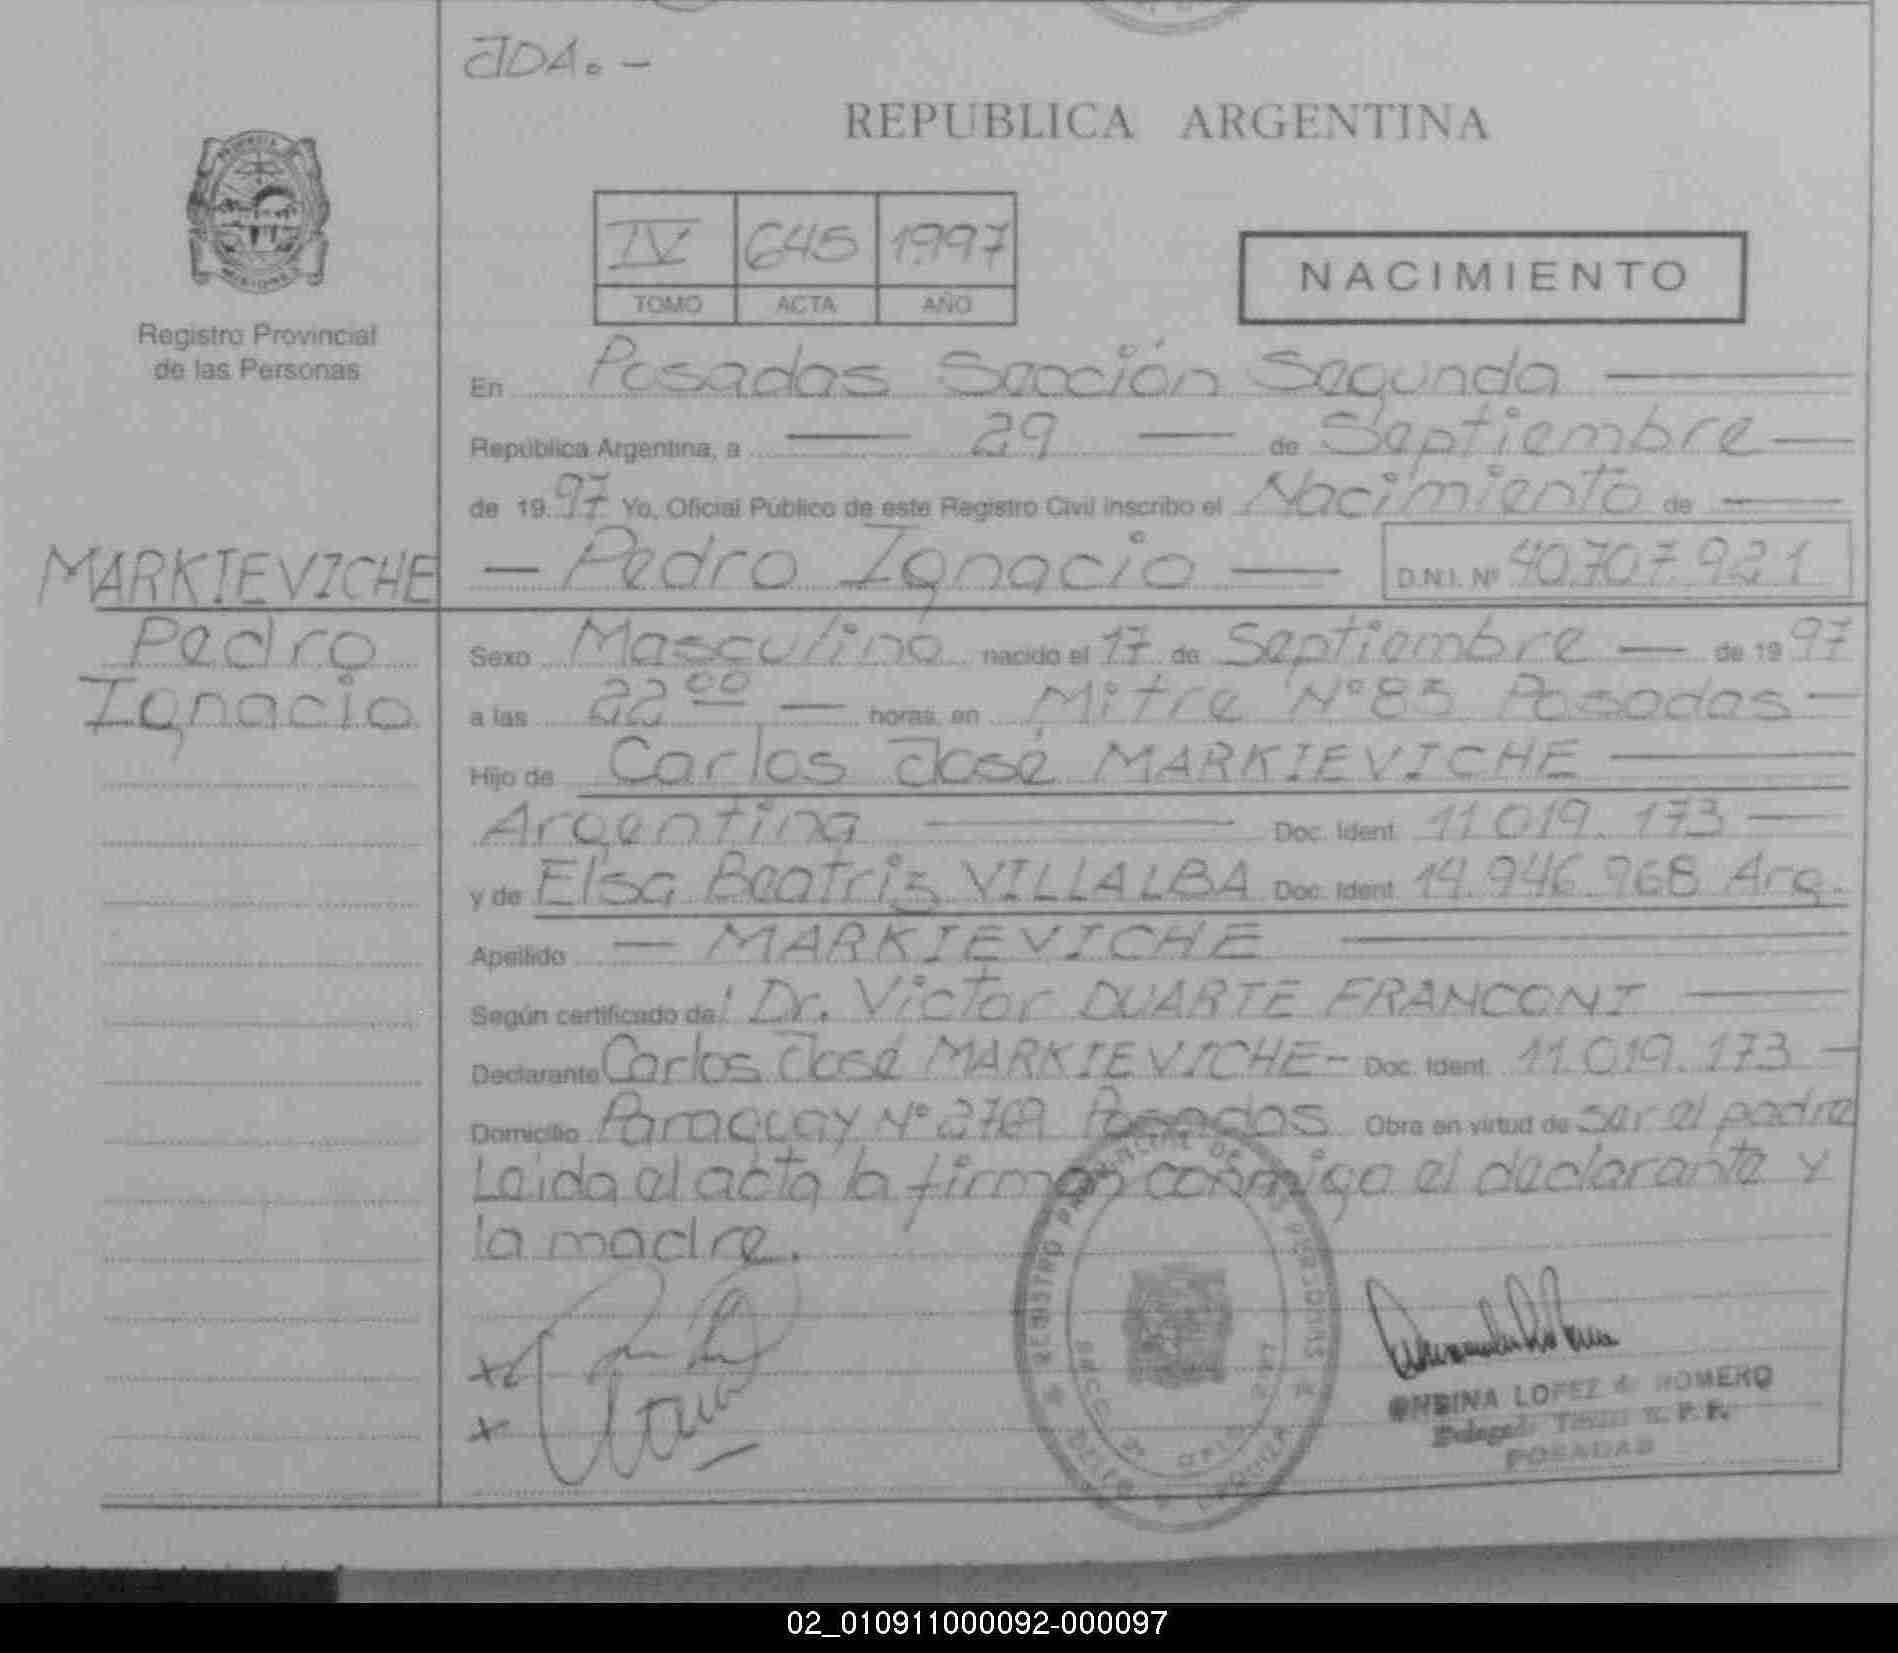 JDA. -
REPUBLICA ARGENTINA
IV 645 1997
TOMO ACTA AÑO
NACIMIENTO
Registro Provincial
de las Personas
En Posadas Sección Segunda
República Argentina, a 29 de Septiembre
de 1997 Yo, Oficial Público de este Registro Civil inscribo el Nacimiento de
MARKIEVICHE
Pedro
Ignacio
Pedro Ignacio D.N.I. Nº 40.707.921
Sexo Masculino nacido el 17 de Septiembre de 1997
a las 22 00 horas, en Mitre Nº 83 Posadas
Hijo de Carlos José MARKIEVICHE
Argentina Doc. Ident. 11.019.173
y de Elsa Beatriz VILLALBA Doc. Ident. 14.946.968 Arg.
Apellido MARKIEVICHE
Según certificado de: Dr. Victor DUARTE FRANCONI
Declarante Carlos José MARKIEVICHE - Doc. Ident. 11.019.173
Domicilio Paraguay Nº 2769 Posadas Obra en virtud de ser el padre
Leida el acta la firman conmigo el declarante y
la madre.
REGISTRO PROVINCIAL DE LAS PERSONAS
LOPEZ de ROMERO
POSADAS
02_010911000092-000097